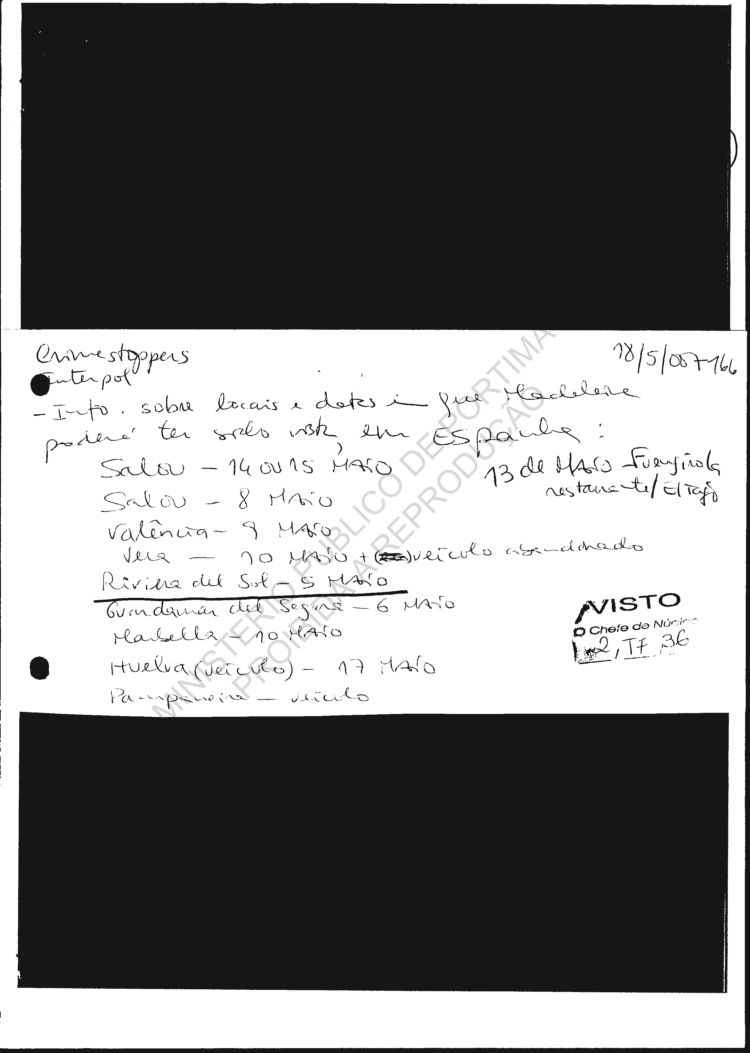 Crimestoppers
Interpol
18/5/007
- Info. sobre locais e datas em que Madeleine
poderá ter sido vista, em Espanha:
Salou - 14 ou 15 MAIO
13 de MAIO - Fuengirola
restaurante / El Tajo
Salou - 8 MAIO
Valência - 9 MAIO
Vera - 10 MAIO + veículo abandonado
Riviera del Sol - 5 MAIO
Guardamar del Segura - 6 MAIO
Marbella - 10 MAIO
Huelva (veículo) - 17 MAIO
Pampaneira - veículo
VISTO
O Chefe do Núcleo
MINISTÉRIO PÚBLICO DE PORTIMÃO
PROIBIDA A REPRODUÇÃO